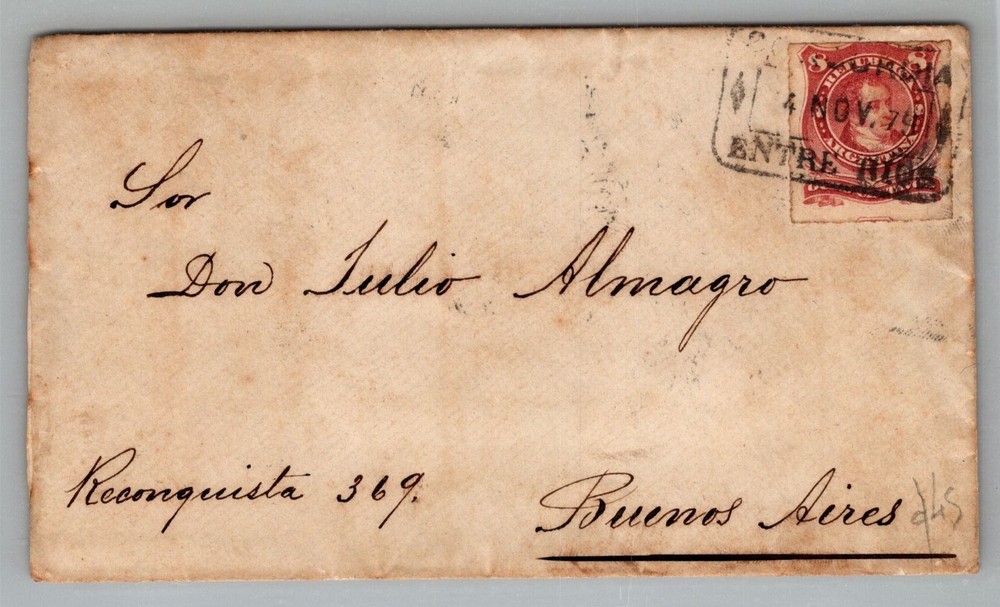 8 8
REPUBLICA
4 NOV. 79
ARGENTINA
ENTRE RIOS
Sor
Don Julio Almagro
Reconquista 369.
Buenos Aires